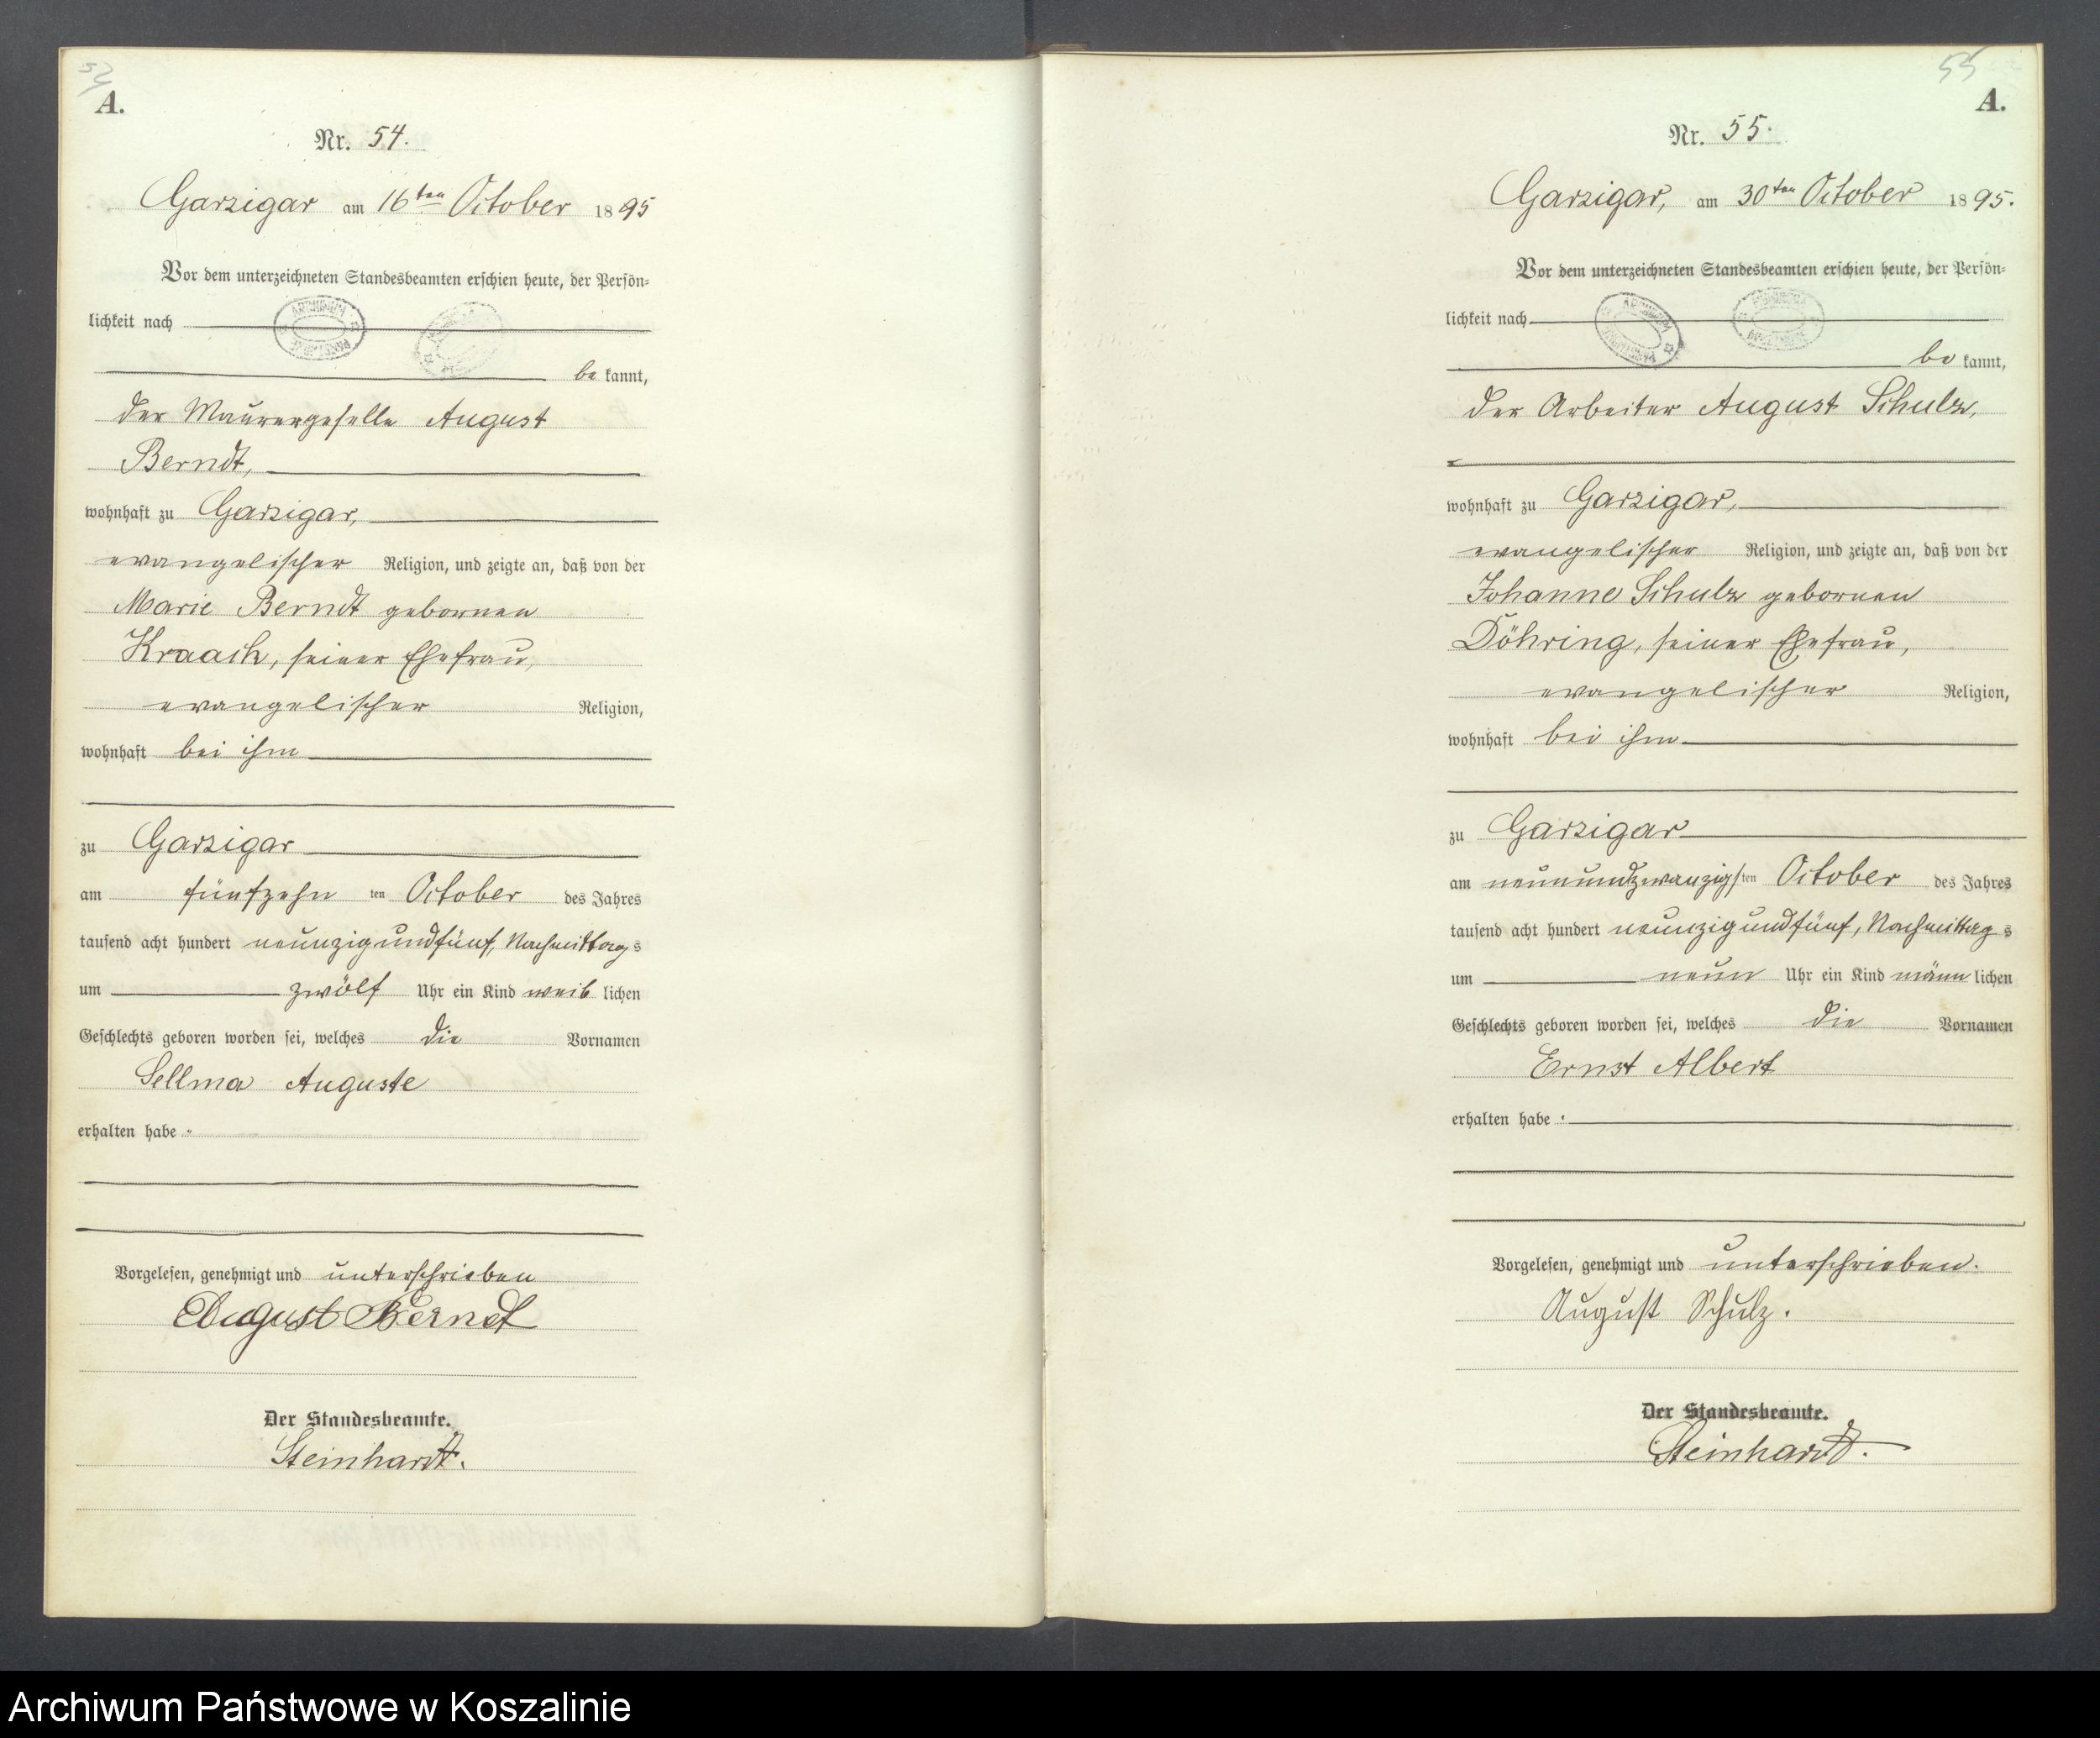 54
A.
Nr. 54.
Garzigar am 16ten October 1895
Vor dem unterzeichneten Standesbeamten erschien heute, der Persön-
lichkeit nach
be kannt,
der Maurergeselle August
Berndt,
wohnhaft zu Garzigar,
evangelischer Religion, und zeigte an, daß von der
Marie Berndt gebornen
Kraach, seiner Ehefrau,
evangelischer Religion,
wohnhaft bei ihm
zu Garzigar
am fünfzehn ten October des Jahres
tausend acht hundert neunzig und fünf, Nachmittag s
um zwölf Uhr ein Kind weib lichen
Geschlechts geboren worden sei, welches die Vornamen
Sellma Auguste
erhalten habe.
Vorgelesen, genehmigt und unterschrieben
August Berndt
Der Standesbeamte.
Steinhardt.
55
A.
Nr. 55.
Garzigar, am 30ten October 1895.
Vor dem unterzeichneten Standesbeamten erschien heute, der Persön-
lichkeit nach
be kannt,
der Arbeiter August Schulz,
wohnhaft zu Garzigar,
evangelischer Religion, und zeigte an, daß von der
Johanne Schulz gebornen
Döhring, seiner Ehefrau,
evangelischer Religion,
wohnhaft bei ihm
zu Garzigar
am neunundzwanzigsten October des Jahres
tausend acht hundert neunzig und fünf, Nachmittag s
um neun Uhr ein Kind männ lichen
Geschlechts geboren worden sei, welches die Vornamen
Ernst Albert
erhalten habe.
Vorgelesen, genehmigt und unterschrieben.
August Schulz.
Der Standesbeamte.
Steinhardt.
Archiwum Państwowe w Koszalinie